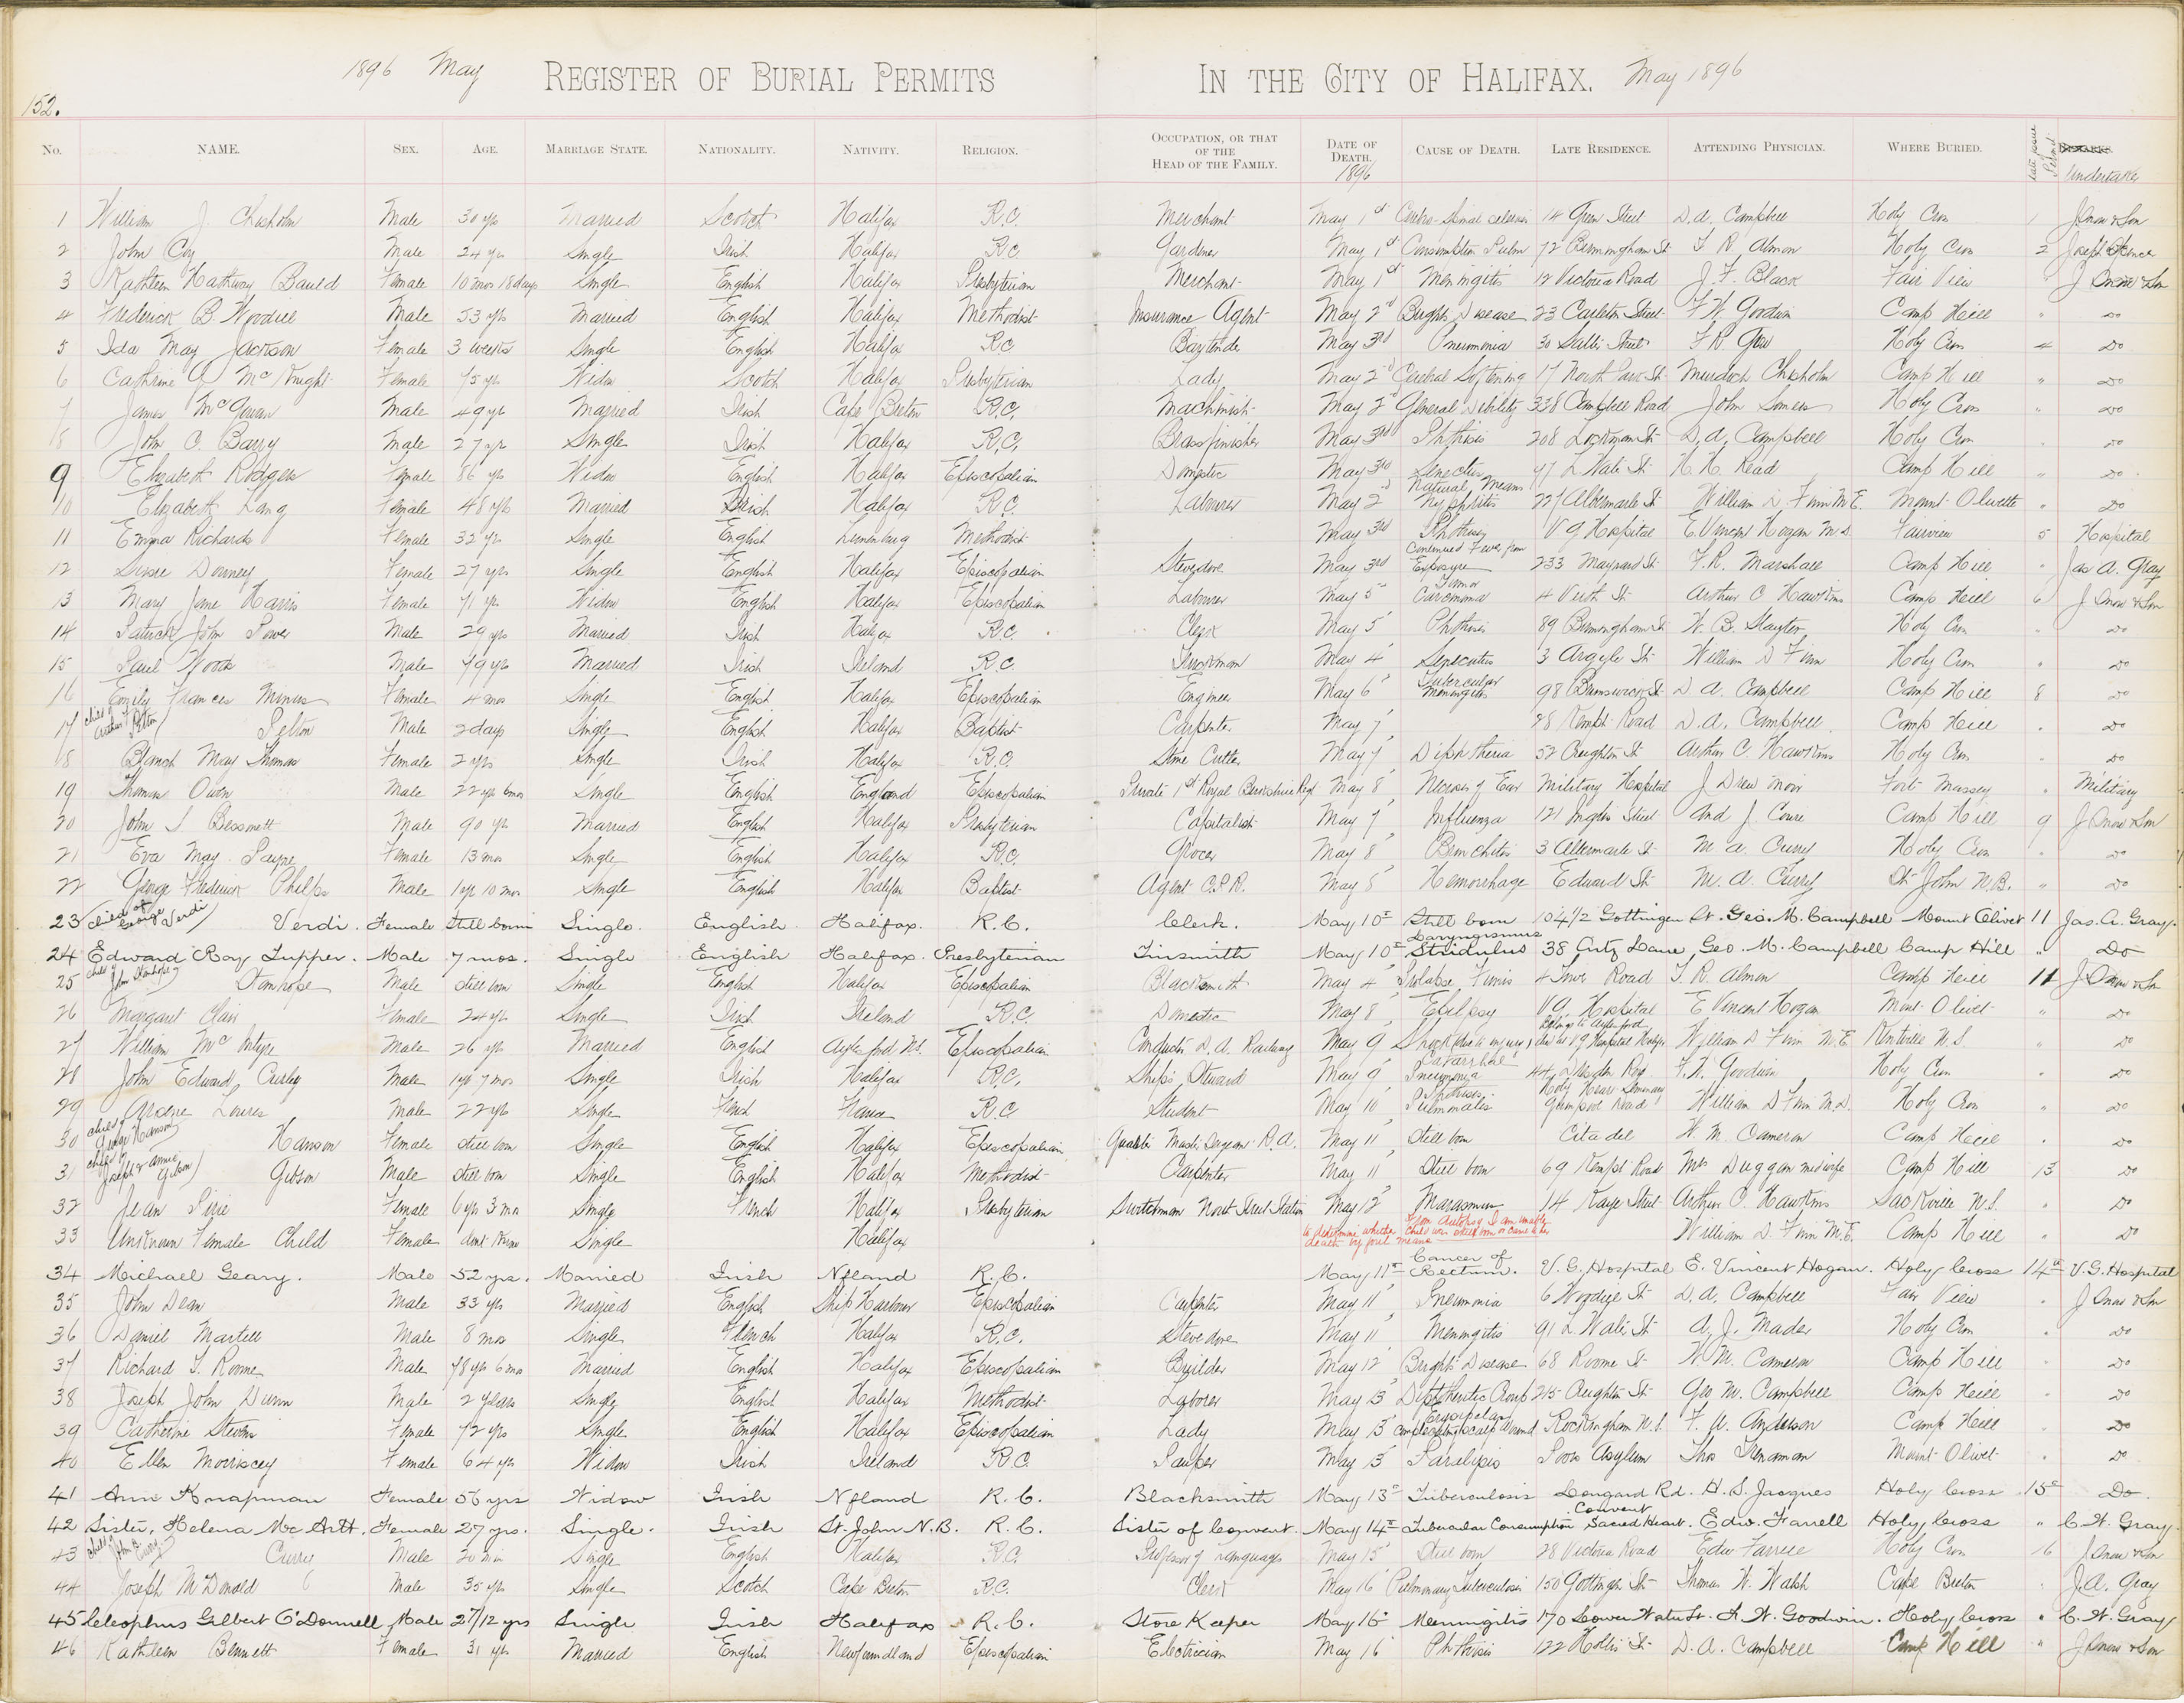 1896 May REGISTER OF BURIAL PERMITS IN THE CITY OF HALIFAX. May 1896
152.
No. NAME. SEX. AGE. MARRIAGE STATE. NATIONALITY. NATIVITY. RELIGION. OCCUPATION, OR THAT OF THE HEAD OF THE FAMILY. DATE OF DEATH. 1896 CAUSE OF DEATH. LATE RESIDENCE. ATTENDING PHYSICIAN. WHERE BURIED. Date issue Permit Undertaker
1 William J. Chisholm Male 30 yrs Married Scotch Halifax R.C. Merchant May 1st Cerebro Spinal 14 Green Street D. A. Campbell Holy Cross 1 J Snow & Son
2 John Coy Male 24 yrs Single Irish Halifax R.C. Gardner May 1st Consumption Pulm 72 Birmingham St F R Almon Holy Cross 2 Joseph Spencer
3 Kathleen Hathway Bauld Female 10 mos 18 days Single English Halifax Presbyterian Merchant May 1st Meningitis 12 Victoria Road J. F. Black Fair View " J Snow & Son
4 Frederick B Woodill Male 53 yrs Married English Halifax Methodist Insurance Agent May 2d Brights Disease 23 Carleton Street F. W. Goodwin Camp Hill " Do
5 Ida May Jackson Female 3 weeks Single English Halifax R.C. May 3rd Pneumonia 30 Street F R Holy Cross 4 Do
6 Cathrine G McKnight Female 75 yrs Widow Scotch Halifax Presbyterian Lady May 2d Cerebral Softening 17 North Park St Murdoch Chisholm Camp Hill " Do
7 James McGowan Male 49 yrs Married Irish Cape Breton R.C. Machinist May 2d General Debility 338 Campbell Road John Somers Holy Cross " Do
8 John C. Barry Male 27 yrs Single Irish Halifax R.C. Brassfinisher May 3rd Phthisis 208 Lockman St D. A. Campbell Holy Cross Do
9 Elizabeth Rodgers Female 86 yrs Widow English Halifax Episcopalian Domestic May 3rd Senectus 97 L Water St H. H. Read Camp Hill " Do
10 Elizabeth Lang Female 48 yrs Married Irish Halifax R.C. Labourer May 2d Natural Means Nephritis 227 Albermarle St William D Finn M.E. Mount Olivette " Do
11 Emma Richards Female 32 yrs Single English Lunenburg Methodist May 3rd Phthisis V G Hospital E. Vincent Hogan M.D. Fairview 5 Hospital
12 Susie Downey Female 27 yrs Single English Halifax Episcopalian Stevedore May 3rd Continued Fever from Exposure 233 Maynard St F. R. Marshall Camp Hill " Jas A. Gray
13 Mary Jane Harris Female 71 yrs Widow English Halifax Episcopalian Labourer May 5 Tumor Carcinoma 4 Veith St Arthur C Hawkins Camp Hill 6 J Snow & Son
14 Patrick John Power Male 29 yrs Married Irish Halifax R.C. Clerk May 5 Phthisis 89 Birmingham St W. B. Slayter Holy Cross " Do
15 Paul Woods Male 79 yrs Married Irish Ireland R.C. Truckman May 4 Senectus 3 Argyle St William D Finn Holy Cross " Do
16 Emily Frances Minns Female 4 mos Single English Halifax Episcopalian Engineer May 6 Tubercular Meningitis 98 Brunswick St D A. Campbell Camp Hill 8 Do
17 child of Arthur F Pelton Pelton Male 2 days Single English Halifax Baptist Carpenter May 7 28 Kempt Road D. A. Campbell Camp Hill " Do
18 Blanch May Thomas Female 2 yrs Single Irish Halifax R.C. Stone Cutter May 7 Diphtheria 52 Creighton St Arthur C. Hawkins Holy Cross " Do
19 Thomas Owen Male 22 yrs 6mos Single English England Episcopalian Private 1st Royal Berkshire Regt May 8 Necrosis of Ear Military Hospital J Drew Moir Fort Massey " Military
20 John S Bessonett Male 90 yrs Married English Halifax Presbyterian Capitalist May 7 Influenza 121 Inglis Street And J. Cowie Camp Hill 9 J Snow & Son
21 Eva May Payne Female 13 mos Single English Halifax R.C. Grocer May 8 Bronchitis 3 Albermarle St M A. Curry Holy Cross " Do
22 George Frederick Philps Male 1 yr 10 mos Single English Halifax Baptist Agent C.P.R. May 8 Hemorrhage Edward St M. A. Curry St John N.B. " Do
23 child of George Verdi Verdi. Female Still born Single. English. Halifax. R. C. Clerk. May 10th Still born 104 1/2 Gottingen St. Geo. M. Campbell Mount Olivet 11 Jas. A. Gray.
24 Edward Roy Tupper. Male 7 mos. Single English Halifax. Presbyterian Tinsmith May 10th Laryngismus Stridulus 38 Lane Geo. M. Campbell Camp Hill " Do
25 child of John Stanhope Stanhope Male still born Single English Halifax Episcopalian Blacksmith May 4 Prolapse Funis 4 Tower Road F. R. Almon Camp Hill 11 J Snow & Son
26 Margaret Clair Female 24 yrs Single Irish Ireland R.C. Domestic May 8 Epilepsy V G. Hospital E Vincent Hogan Mount Olivet " Do
27 William McIntyre Male 26 yrs Married English Aylesford N.S. Episcopalian Conductor D. A. Railway May 9 Shock due to injury Belongs to Aylesford died at V G Hospital William D Finn M.E. Kentville N.S. " Do
28 John Edward Curley Male 1 yr 7 mos Single Irish Halifax R.C. Ship's Steward May 9 Catarrhal Pneumonia 44 Dresden Row F. W. Goodwin Holy Cross " Do
29 Arsene Male 22 yrs Single French France R.C. Student May 10 Phthisis Pulmonalis Holy Heart Seminary Quinpool Road William D Finn M.D. Holy Cross " Do
30 child of George Hanson Hanson Female still born Single English Halifax Episcopalian Quarter Master Sergeant R.A. May 11 Still born Citadel W. M. Cameron Camp Hill " Do
31 child of Joseph & Annie Gibson Gibson Male still born Single English Halifax Methodist Carpenter May 11 Still born 69 Kempt Road Mrs Duggan midwife Camp Hill 13 Do
32 Jean Pirie Female 6 yrs 3 mos Single French Halifax Presbyterian Switchman North Street Station May 12 Marasmus 14 Kaye Street Arthur C. Hawkins Sackville N.S. " Do
33 Unknown Female Child Female dont know Single Halifax From Autopsy I am unable to determine whether child was still born or came to her death by foul means William D. Finn M.E. Camp Hill " Do
34 Michael Geary. Male 52 yrs. Married Irish Nfland R. C. May 11th Cancer of Rectum. V. G. Hospital E. Vincent Hogan. Holy Cross 14th V. G. Hospital
35 John Dean Male 33 yrs Married English Ship Harbour Episcopalian Carpenter May 11 Pneumonia 6 Woodill St D. A. Campbell Fair View " J Snow & Son
36 Daniel Martell Male 8 mos Single French Halifax R.C. Stevedore May 11 Meningitis 91 L Water St A. J. Mader Holy Cross " Do
37 Richard T. Roome Male 78 yrs 6 mos Married English Halifax Episcopalian Builder May 12 Brights Disease 68 Roome St W. M. Cameron Camp Hill " Do
38 Joseph John Dunn Male 2 years Single English Halifax Methodist Laborer May 13 Diphtheritic Croup 215 Creighton St Geo M. Campbell Camp Hill " Do
39 Catherine Stevens Female 72 yrs Single English Halifax Episcopalian Lady May 13 Erysipelas complicating scalp wound Rockingham N.S. F. U. Anderson Camp Hill " Do
40 Ellen Morriscey Female 64 yrs Widow Irish Ireland R.C. Pauper May 13 Paralipis Poors Asylum Thos Trenaman Mount Olivet " Do
41 Ann Knapman Female 56 yrs Widow Irish Nfland R. C. Blacksmith May 13th Tuberculosis Longard Rd. H. S. Jacques Holy Cross 15th Do.
42 Sister, Helena McArtt. Female 27 yrs. Single. Irish St. John N.B. R. C. Sister of Convent. May 14th Tubercular Consumption Convent Sacred Heart. Edw. Farrell Holy Cross " C. W. Gray.
43 child of John B. Curry Curry Male Single English Halifax R.C. Professor of Languages May 15 Still born 28 Victoria Road Edw Farrell Holy Cross 16 J Snow & Son
44 Joseph McDonald Male 35 yrs Single Scotch Cape Breton R.C. Clerk May 16 Pulmonary Tuberculosis 150 Gottingen St Thomas W. Walsh Cape Breton " J. A. Gray
45 Cleophus Gilbert O'Donnell Male 2 7/12 yrs Single Irish Halifax R. C. Store Keeper May 16th Menningitis 170 Lower Water St. F. W. Goodwin. Holy Cross " C. W. Gray
46 Kathleen Bennett Female 31 yrs Married English Newfoundland Episcopalian Electrician May 16 Phthisis 122 Hollis St D. A. Campbell Camp Hill " J Snow & Son